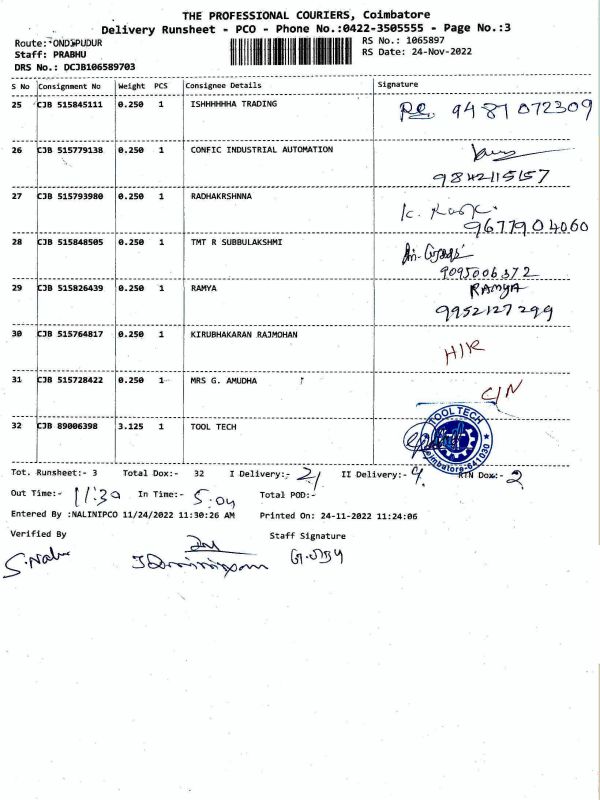 THE PROFESSIONAL COURIERS, Coimbatore
Delivery Runsheet - PCO - Phone No.:0422-3505555 - Page No.:3
Route: ONDIPUDUR
RS No.: 1065897
Staff: PRABHU
RS Date: 24-Nov-2022
DRS No.: DCJB106589703
S No Consignment No Weight PCS Consignee Details Signature
25 CJB 515845111 0.250 1 ISHHHHHHA TRADING 9487072309
26 CJB 515779138 0.250 1 CONFIC INDUSTRIAL AUTOMATION
9842115157
27 CJB 515793980 0.250 1 RADHAKRSHNNA
9677904060
28 CJB 515848505 0.250 1 TMT R SUBBULAKSHMI
9095006372
29 CJB 515826439 0.250 1 RAMYA RAMYA
9952127299
30 CJB 515764817 0.250 1 KIRUBHAKARAN RAJMOHAN
H/R
31 CJB 515728422 0.250 1 MRS G. AMUDHA
C/N
32 CJB 89006398 3.125 1 TOOL TECH TOOL TECH
641030
Tot. Runsheet:- 3 Total Dox:- 32 I Delivery:- 21 II Delivery:- 9 RTN Dox:- 2
Out Time:- 11:30 In Time:- 5:04 Total POD:-
Entered By :NALINIPCO 11/24/2022 11:30:26 AM Printed On: 24-11-2022 11:24:06
Verified By Staff Signature